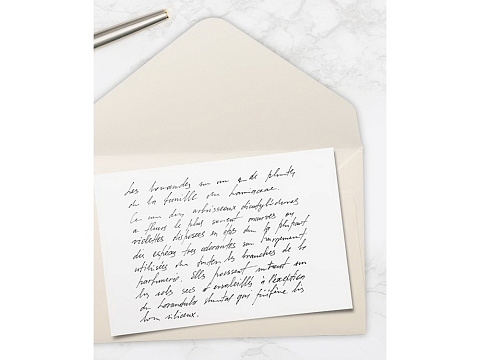 Les lavandes sont un genre de plantes
de la famille des Lamiaceae.
Ce sont des arbrisseaux dicotylédones
à fleurs le plus souvent mauves ou
violettes disposées en épis dont la plupart
des espèces très odorantes sont largement
utilisées dans toutes les branches de la
parfumerie. Elles poussent surtout sur
les sols secs et ensoleillés à l'exception
du Lavandula stoechas que préfère les
sols siliceux.